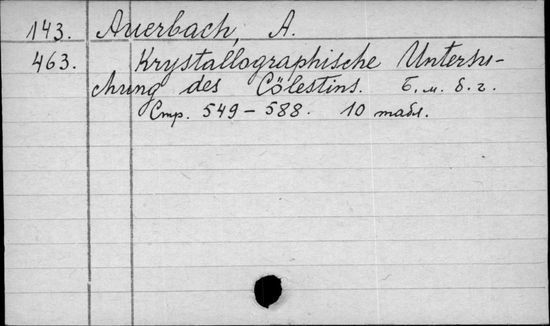 143. Auerbach, A.
463. Krystallographische Untersu-
chung des Cölestins. Б. м. б. г.
Стр. 549-588. 10 табл.